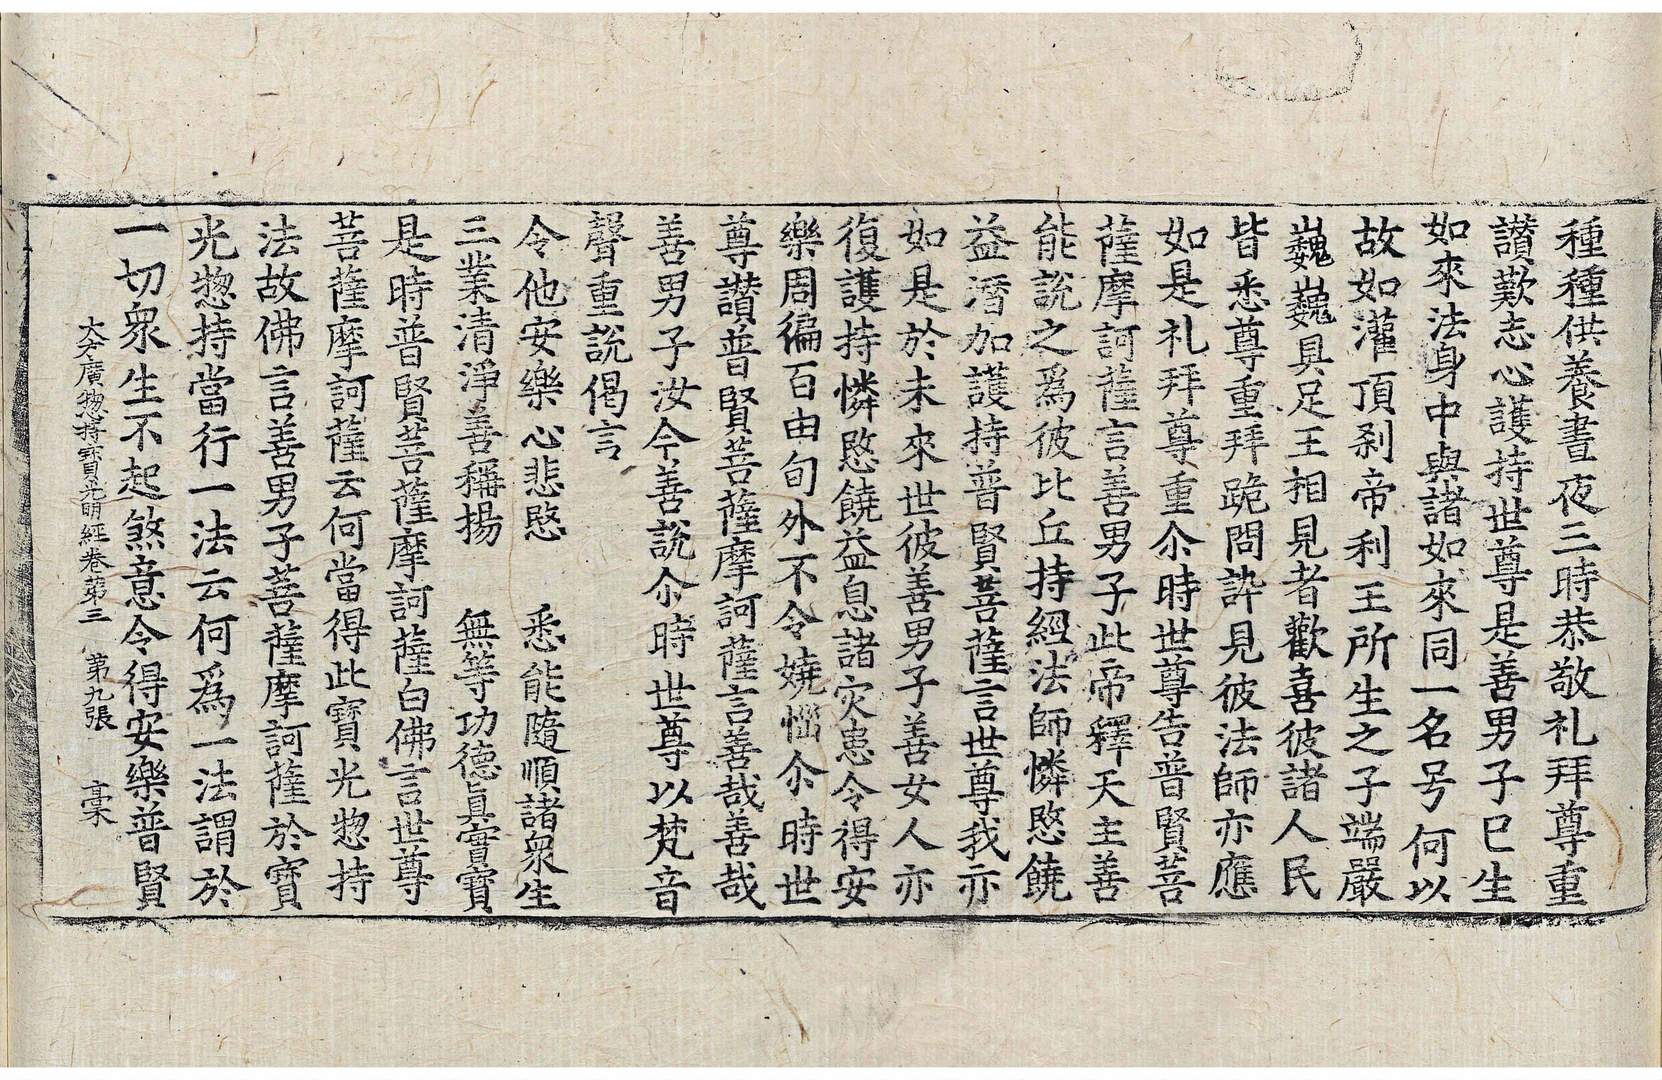 種種供養晝夜三時恭敬礼拜尊重
讃歎志心護持世尊是善男子已生
如來法身中與諸如來同一名号何以
故如灌頂刹帝利王所生之子端嚴
巍巍具足王相見者歡喜彼諸人民
皆悉尊重拜跪問訊見彼法師亦應
如是礼拜尊重尒時世尊告普賢菩
薩摩訶薩言善男子此帝釋天主善
能說之爲彼比丘持經法師憐愍饒
益潛加護持普賢菩薩言世尊我亦
如是於未來世彼善男子善女人亦
復護持憐愍饒益息諸灾患令得安
樂周徧百由旬外不令嬈惱尒時世
尊讃普賢菩薩摩訶薩言善哉善哉
善男子汝今善說尒時世尊以梵音
聲重說偈言
令他安樂心悲愍　悉能隨順諸衆生
三業清淨善稱揚　無等功德眞實寶
是時普賢菩薩摩訶薩白佛言世尊
菩薩摩訶薩云何當得此寶光惣持
法故佛言善男子菩薩摩訶薩於寶
光惣持當行一法云何爲一法謂於
一切衆生不起煞意令得安樂普賢
大方廣惣持寶光明經卷第三　第九張　槀